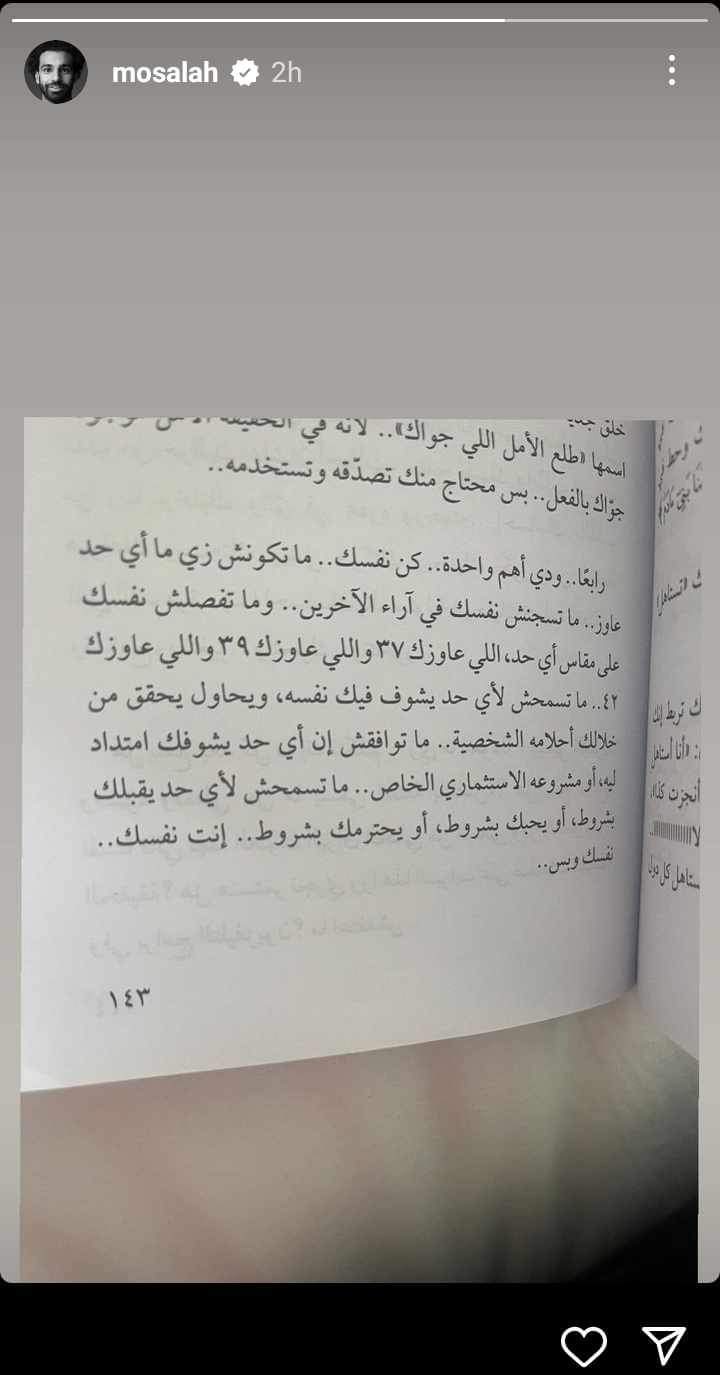 mosalah 2h
خلق
اسمها «طلع الأمل اللي جواك».. لأنه في الحقيقة
جوّاك بالفعل.. بس محتاج منك تصدّقه وتستخدمه..
رابعًا.. ودي أهم واحدة.. كن نفسك.. ما تكونش زي ما أي حد
عاوز.. ما تسجنش نفسك في آراء الآخرين.. وما تفصلش نفسك
على مقاس أي حد، اللي عاوزك ٣٧ واللي عاوزك ٣٩ واللي عاوزك
٤٢.. ما تسمحش لأي حد يشوف فيك نفسه، ويحاول يحقق من
خلالك أحلامه الشخصية.. ما توافقش إن أي حد يشوفك امتداد
ليه، أو مشروعه الاستثماري الخاص.. ما تسمحش لأي حد يقبلك
بشروط، أو يحبك بشروط، أو يحترمك بشروط.. إنت نفسك..
نفسك وبس..
١٤٣
ك تربط إنك
: «أنا أستاهل
أنجزت كذا»،
ستاهل كل دول